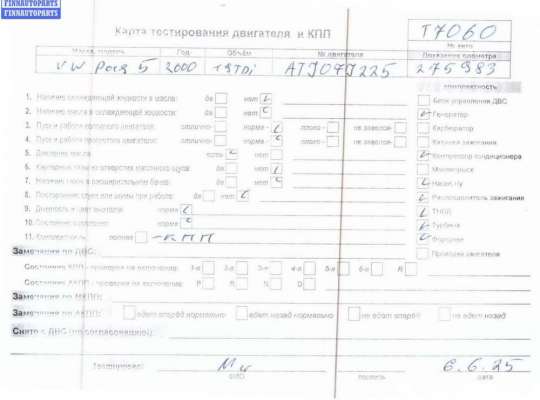 FINNAUTOPARTS
Карта тестирования двигателя и КПП
T7060
№ авто
Марка, модель Год Объём № двигателя Показания одометра
VW Pass 5 2000 1.9TDi ATJ079225 275983
комплектность
1. Наличие охлаждающей жидкости в масле: да нет
Блок управления ДВС
2. Наличие масла в охлаждающей жидкости: да нет
Генератор
3. Пуск и работа холодного двигателя: отлично норма плохо не завелся
Карбюратор
4. Пуск и работа прогретого двигателя: отлично норма плохо не завелся
Катушка зажигания
5. Давление масла: есть нет
Компрессор кондиционера
6. Картерные газы из отверстия масляного щупа: да нет
Моновпрыск
7. Наличие газов в расширительном бачке: да нет
Насос г/у
8. Посторонние стуки или шумы при работе: да нет
Распределитель зажигания
9. норма
ТНВД
10. норма
Турбина
11. Комплектность: полная - КПП
Форсунки
Проводка двигателя
Замечания по ДВС:
Состояние КПП - проверка на включение: 1-я 2-я 3-я 4-я 5-я 6-я R
Состояние АКПП - проверка на включение: P R N D
Замечания по МКПП:
Замечания по АКПП: едет вперёд нормально едет назад нормально не едет вперёд не едет назад
Снято с ДВС (по согласованию):
Тестировал: 6.6.25
ФИО подпись дата